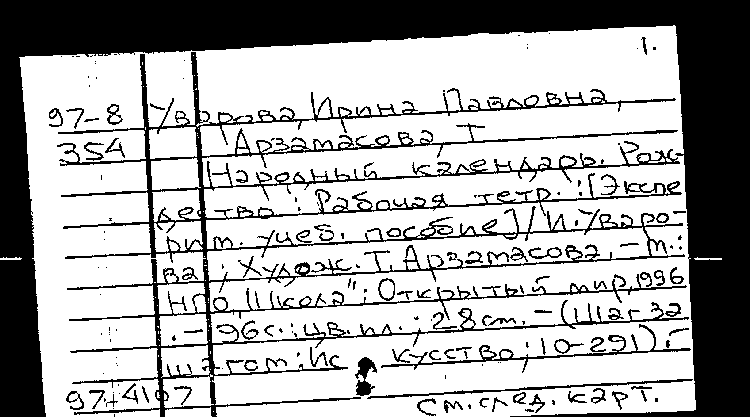 1.
97-8 Уварова, Ирина Павловна,
354 Арзамасова, Т
Народный календарь. Рож-
дество : Рабочая тетр. : [Экспе
рим. учеб. пособие] / И. Уваро-
ва ; Худож. Т. Арзамасова. – М. :
НПО "Школа" : Открытый мир, 1996
. – 96 с. : цв. ил. ; 28 см. – (Шаг за
шагом : Ис кусство ; 10-291) .
97-4107
См. след. карт.